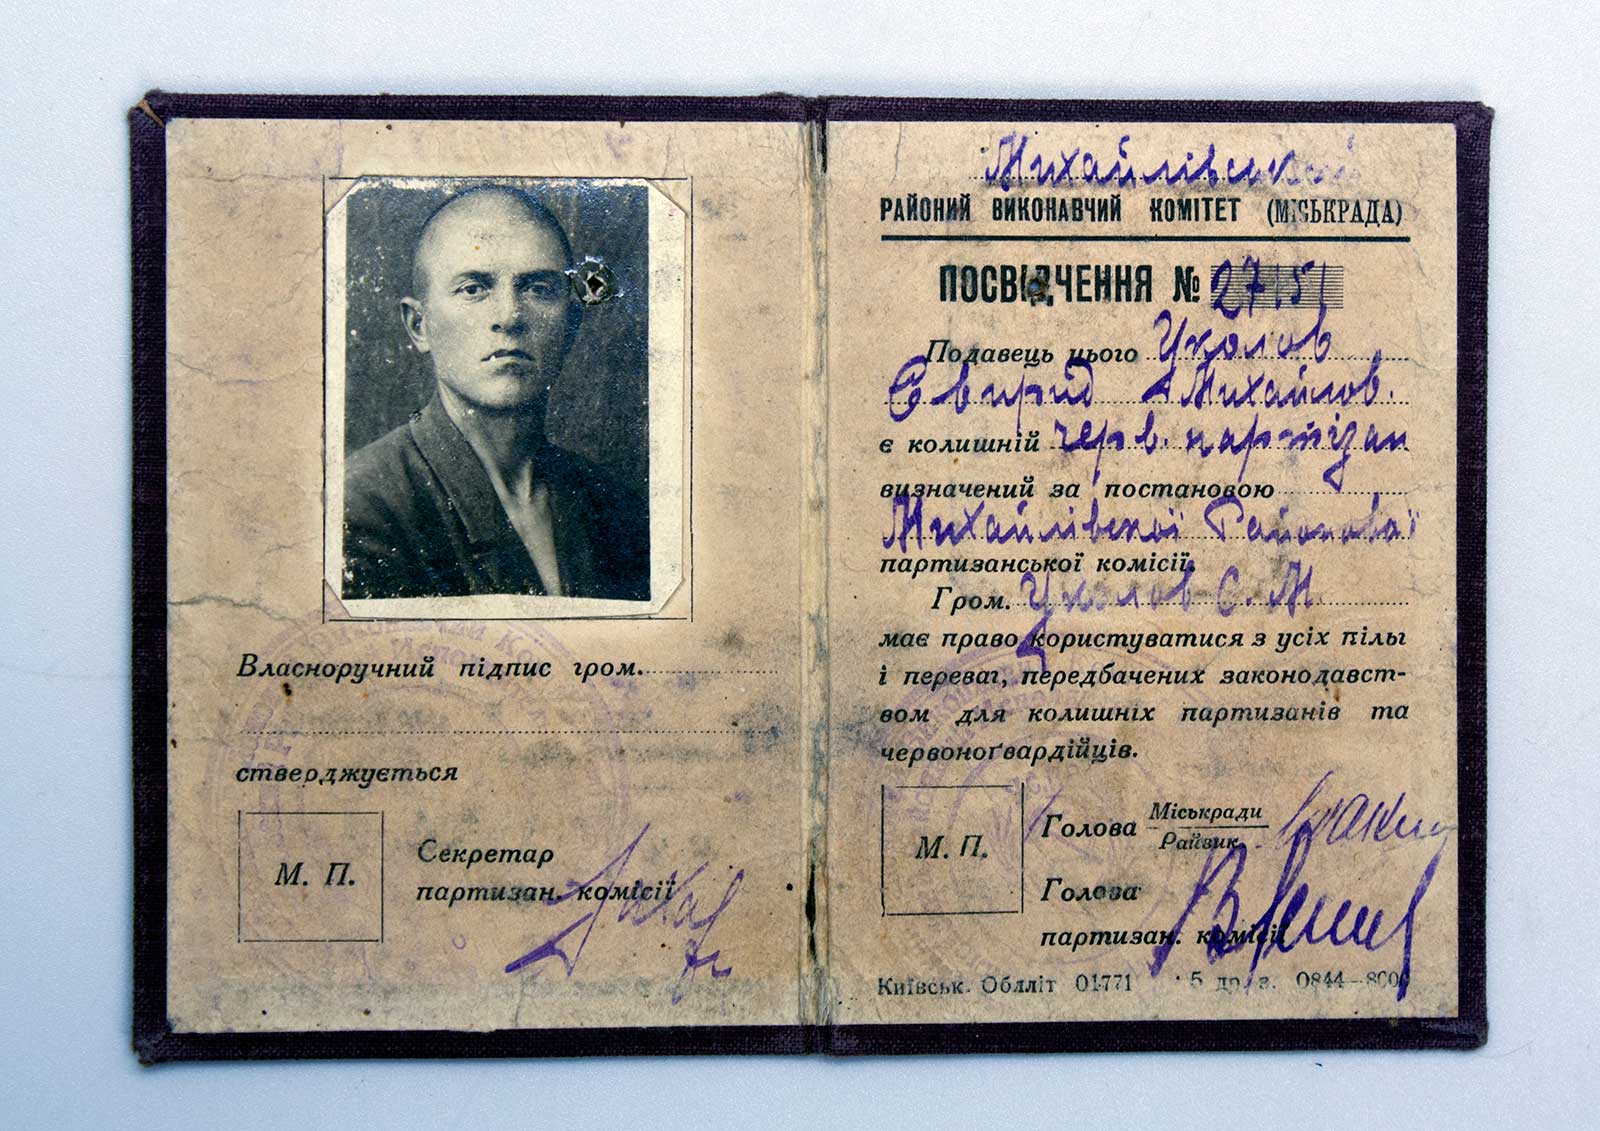 Власноручний підпис гром.
стверджується
М. П.
Секретар
партизан. комісії
Михайлівський
РАЙОНИЙ ВИКОНАВЧИЙ КОМІТЕТ (МІСЬКРАДА)
ПОСВІДЧЕННЯ № 27151
Подавець цього Уколов
Свирид Михайлов.
є колишній черв. партізан
визначений за постановою
Михайлівскої Районової
партизанської комісії.
Гром. Уколов С. М.
має право користуватися з усіх пільг
і переваг, передбачених законодавст-
вом для колишніх партизанів та
червоноґвардійців.
М. П.
Голова Міськради
Райвик.
Голова
партизан. комісії
Київськ. Обліт 01771 5 др. з. 0844—800